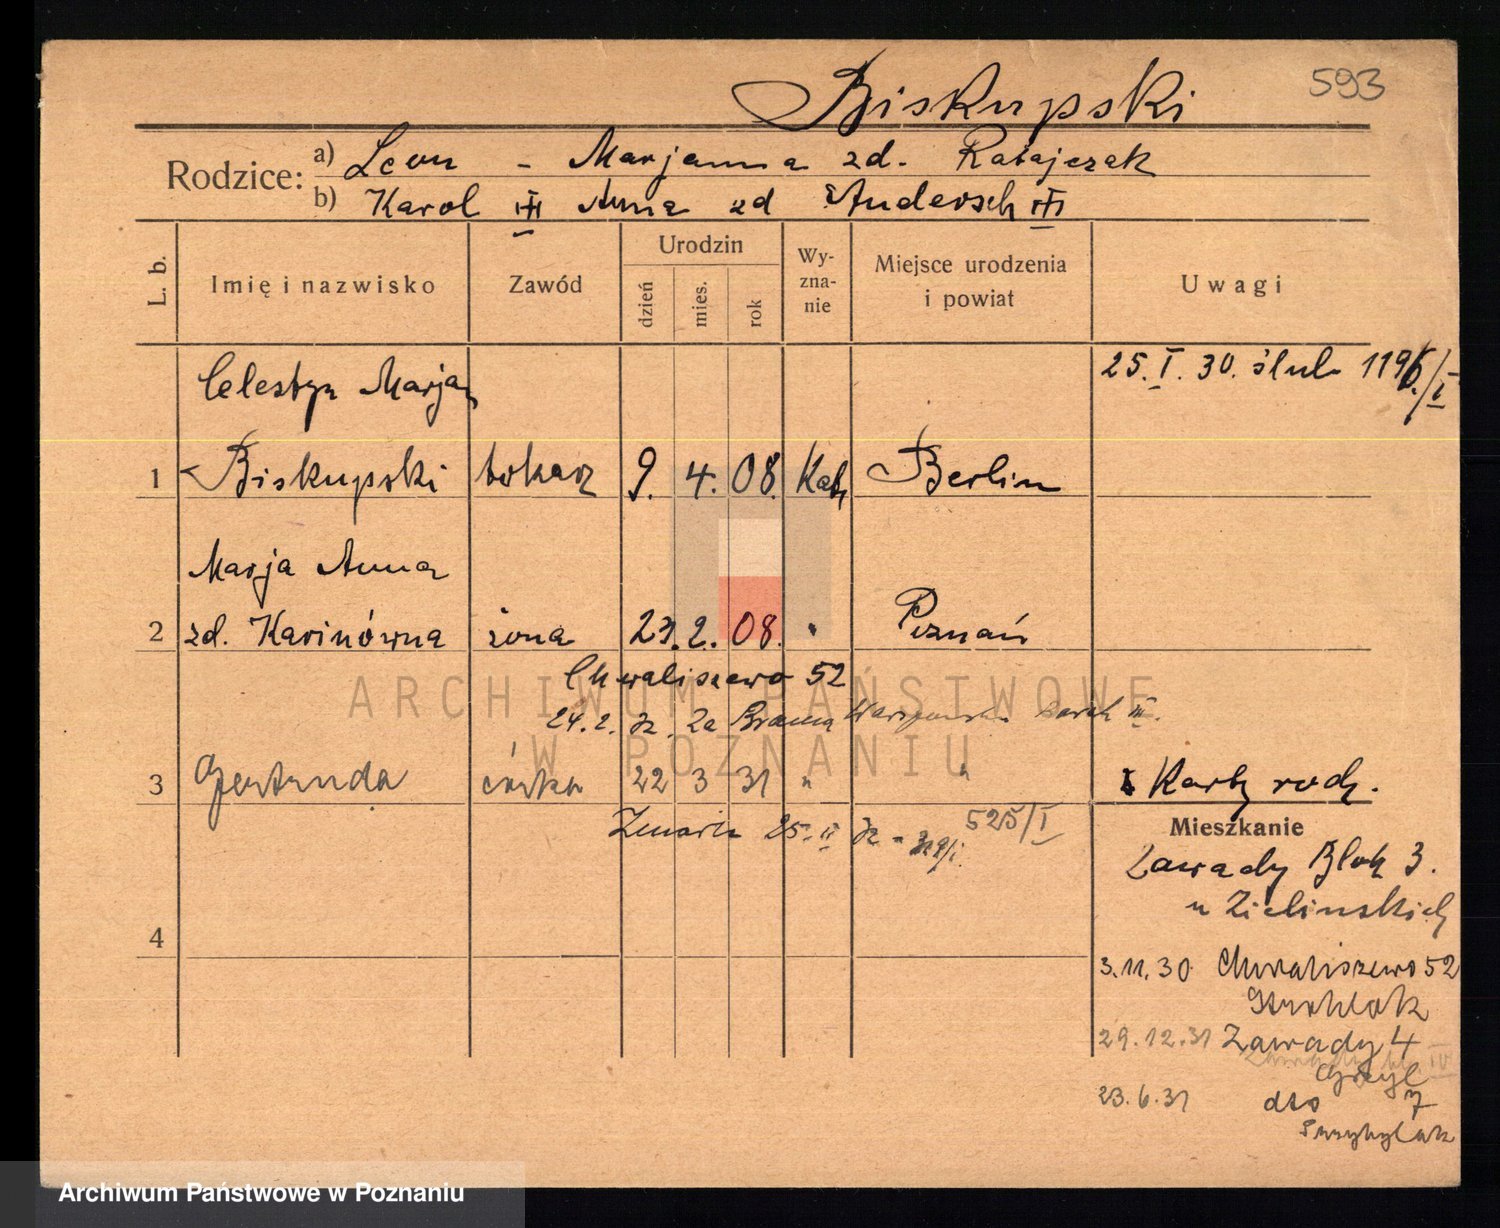 593
Biskupski
Rodzice:
a) Leon - Marjanna zd. Ratajczak
b) Karol Anna zd Andersch
L. b.
Imię i nazwisko
Zawód
Urodzin
dzień
mies.
rok
Wy-
zna-
nie
Miejsce urodzenia
i powiat
Uwagi
25. I. 30. ślub
Celestyn Marjan
1 Biskupski tokarz 9. 4. 08. Kat Berlin
Marja Anna
2 zd. Karinówna żona 23. 2. 08. " Poznań
Chwaliszewo 52
24. 2. 32 Za Bramą Warszawską barak III.
3 Gertruda córka 22 3 31 " "
z Karty rodz.
Zmarła 25. II 32 525/I
Mieszkanie
Zawady Blok 3.
u Zielinskich
4
3.11.30 Chwaliszewo 52
29.12.31 Zawady 4
23.6.31 dto 7
Przybylak
ARCHIWUM PAŃSTWOWE
W POZNANIU
Archiwum Państwowe w Poznaniu